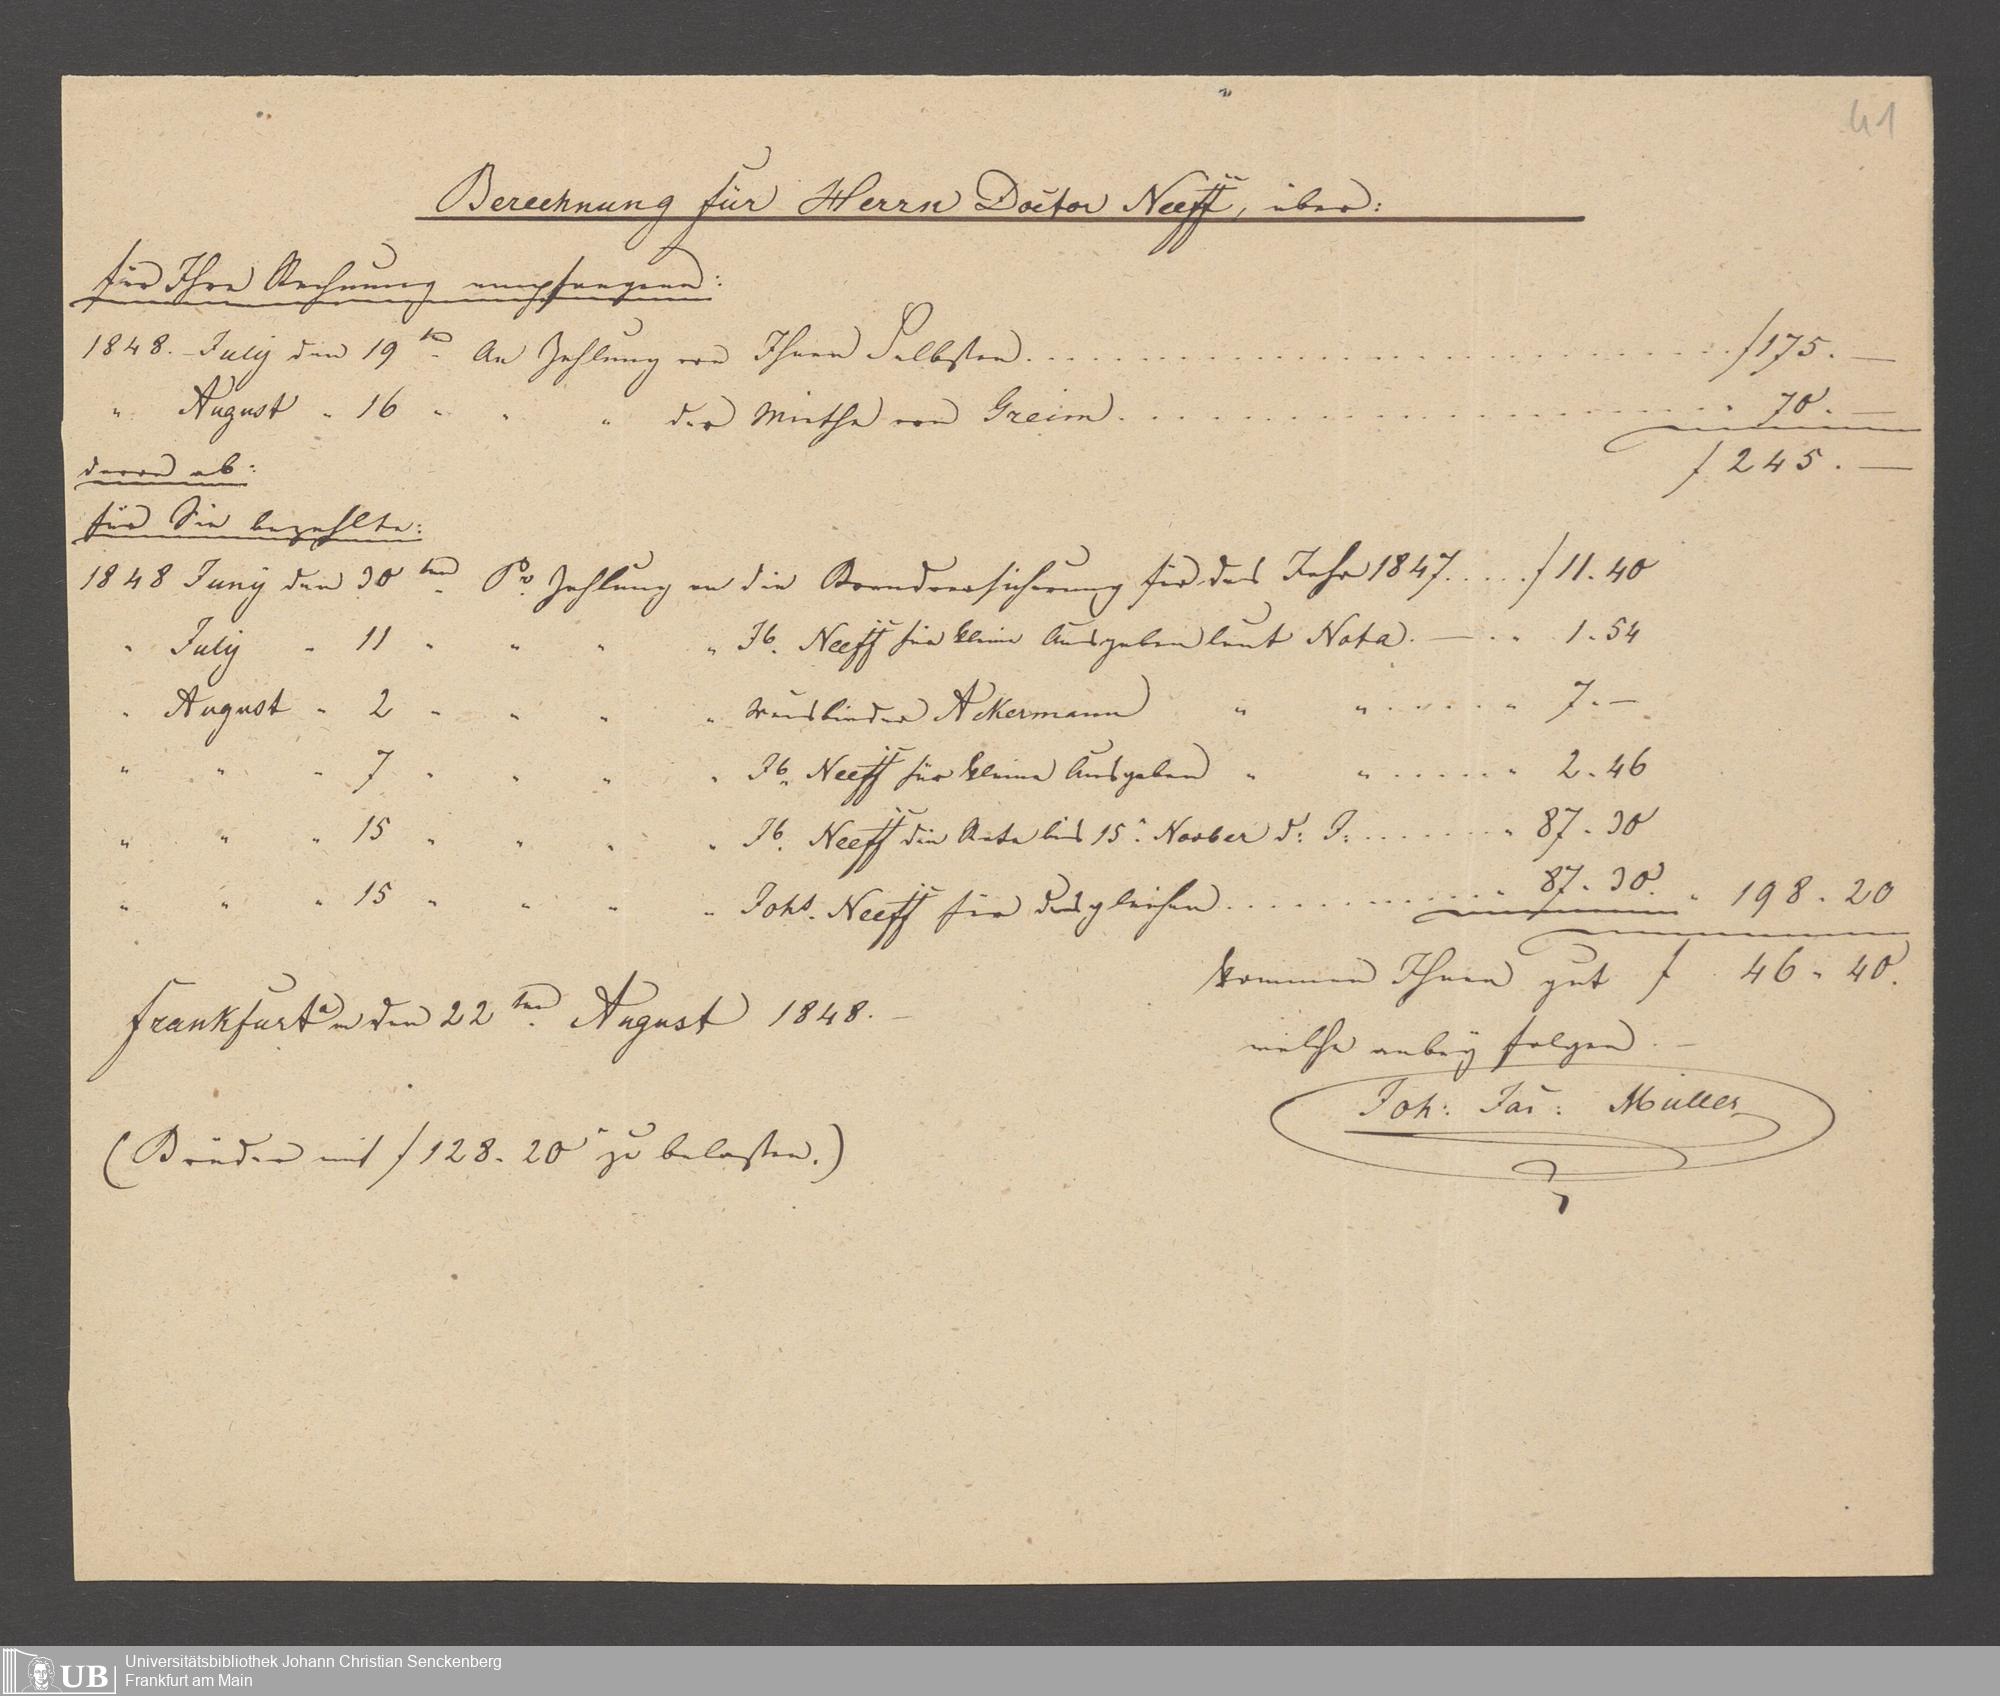 41
Berechnung für Herrn Doctor Neeff, über:
für Ihre Rechnung empfangene:
1848. July den 19ten An Zahlung von Ihnen Selbsten . . . . . f 175. —
" August " 16 " " " der Miethe von Greim . . . . . " 70. —
f 245. —
davon ab:
für Sie bezahlte:
1848 Juny den 30ten Pr. Zahlung an die Brandversicherung für das Jahr 1847 . . . . f 11. 40
" July " 11 " " " " Jb. Neeff für kleine Ausgaben laut Nota. — . " 1. 54
" August " 2 " " " " Weisbinder Ackermann " " . . . . " 7. —
" " " 7 " " " " Jb. Neeff für kleine Ausgaben " " . . . . . " 2. 46
" " " 15 " " " " Jb. Neeff die Rate bis 15. Novber d: J: . . . . . . " 87. 30
" " " 15 " " " " Johs. Neeff für desgleichen . . . . . . " 87. 30. " 198. 20
kommen Ihnen gut f 46. 40.
Frankfurt a/m den 22ten August 1848. —
welche anbey folgen. —
Joh: Jac: Müller
(Brüder mit f 128. 20 zu belasten.)
UB
Universitätsbibliothek Johann Christian Senckenberg
Frankfurt am Main